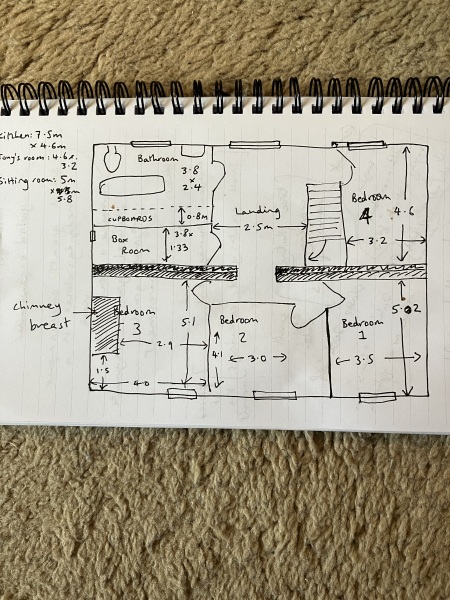 Kitchen: 7.5m
x 4.6m
Tony's room: 4.6x
3.2
Sitting room: 5m
x
5.8
Bathroom
3.8
x
2.4
CUPBOARDS
0.8m
Box
Room
3.8x
1.33
Landing
2.5m
Bedroom
4
4.6
3.2
chimney
breast
Bedroom
3
5.1
2.9
1.5
4.0
Bedroom
2
4.1
3.0
Bedroom
1
5.02
3.5